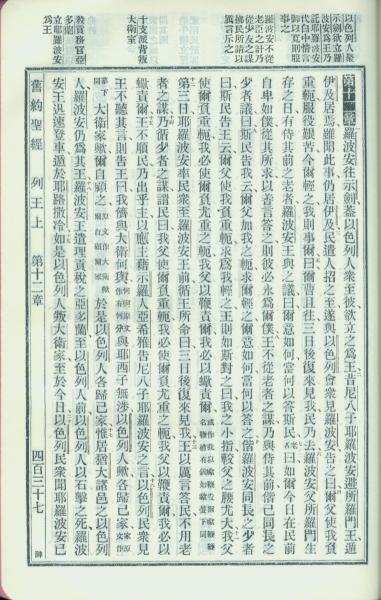 以色列人聚
於示劍欲立
羅波安為王乃
託耶羅波安
代白中情言
御以寬則服
事之
羅波安不從
老臣之計乃
從少友謀
拂民所請以
厲言斥之
十支派背叛
大衛室
殺貢務官亞
多蘭
立耶羅波安
為王
第十二章羅波安往示劍蓋以色列人衆至彼欲立之爲王昔尼八子耶羅波安避所羅門王遁
伊及居焉雖聞此事仍居伊及民遣人招之至遂與以色列會衆見羅波安告之曰爾父使我負
重軛服役艱苦今爾輕之我則事爾曰爾曹且往三日後復來見我民乃去羅波安父所羅門生
存之日有侍其前之老者羅波安王與之議曰爾意如何當何以答斯民老者曰如爾今日在民前
自卑如僕從其所求以善言答之則彼必永爲爾僕王不從老者之謀乃與侍其前偕己同長之
少者議曰斯民告我云爾父加我之軛求爾輕之爾意如何當何以答之偕羅波安同長之少者
曰斯民告王云爾父使我負重軛求爲我輕之王則如斯對之曰我之小指較父之腰尤大我父
使爾負重軛我必使爾負尤重之軛我父以鞭責爾我必以蠍責爾
第三日耶羅波安率民衆至羅波安王前循王所命曰三日後復來見我王以厲言答民不用老
者之謀乃循少者之謀謂民曰我父使爾負重軛我必使爾負尤重之軛我父以鞭責爾我必以
蠍責爾王不順民乃出乎主以應主藉示羅人亞希雅告尼八子耶羅波安之言以色列民衆見
王不聽其言則告王曰我儕與大衛何與與耶西子無涉以色列人歟各歸己家
大衛家歟爾自顧之於是以色列人各歸己家惟居猶大諸邑之以色列
人羅波安仍爲其王羅波安王遣理貢稅之亞多蘭至以色列人前以色列人以石擊之死羅波
安王迅速登車遁於耶路撒冷如是以色列人叛大衛家至於今日以色列民衆聞耶羅波安已
舊約聖經 列王上 第十二章 四百三十七